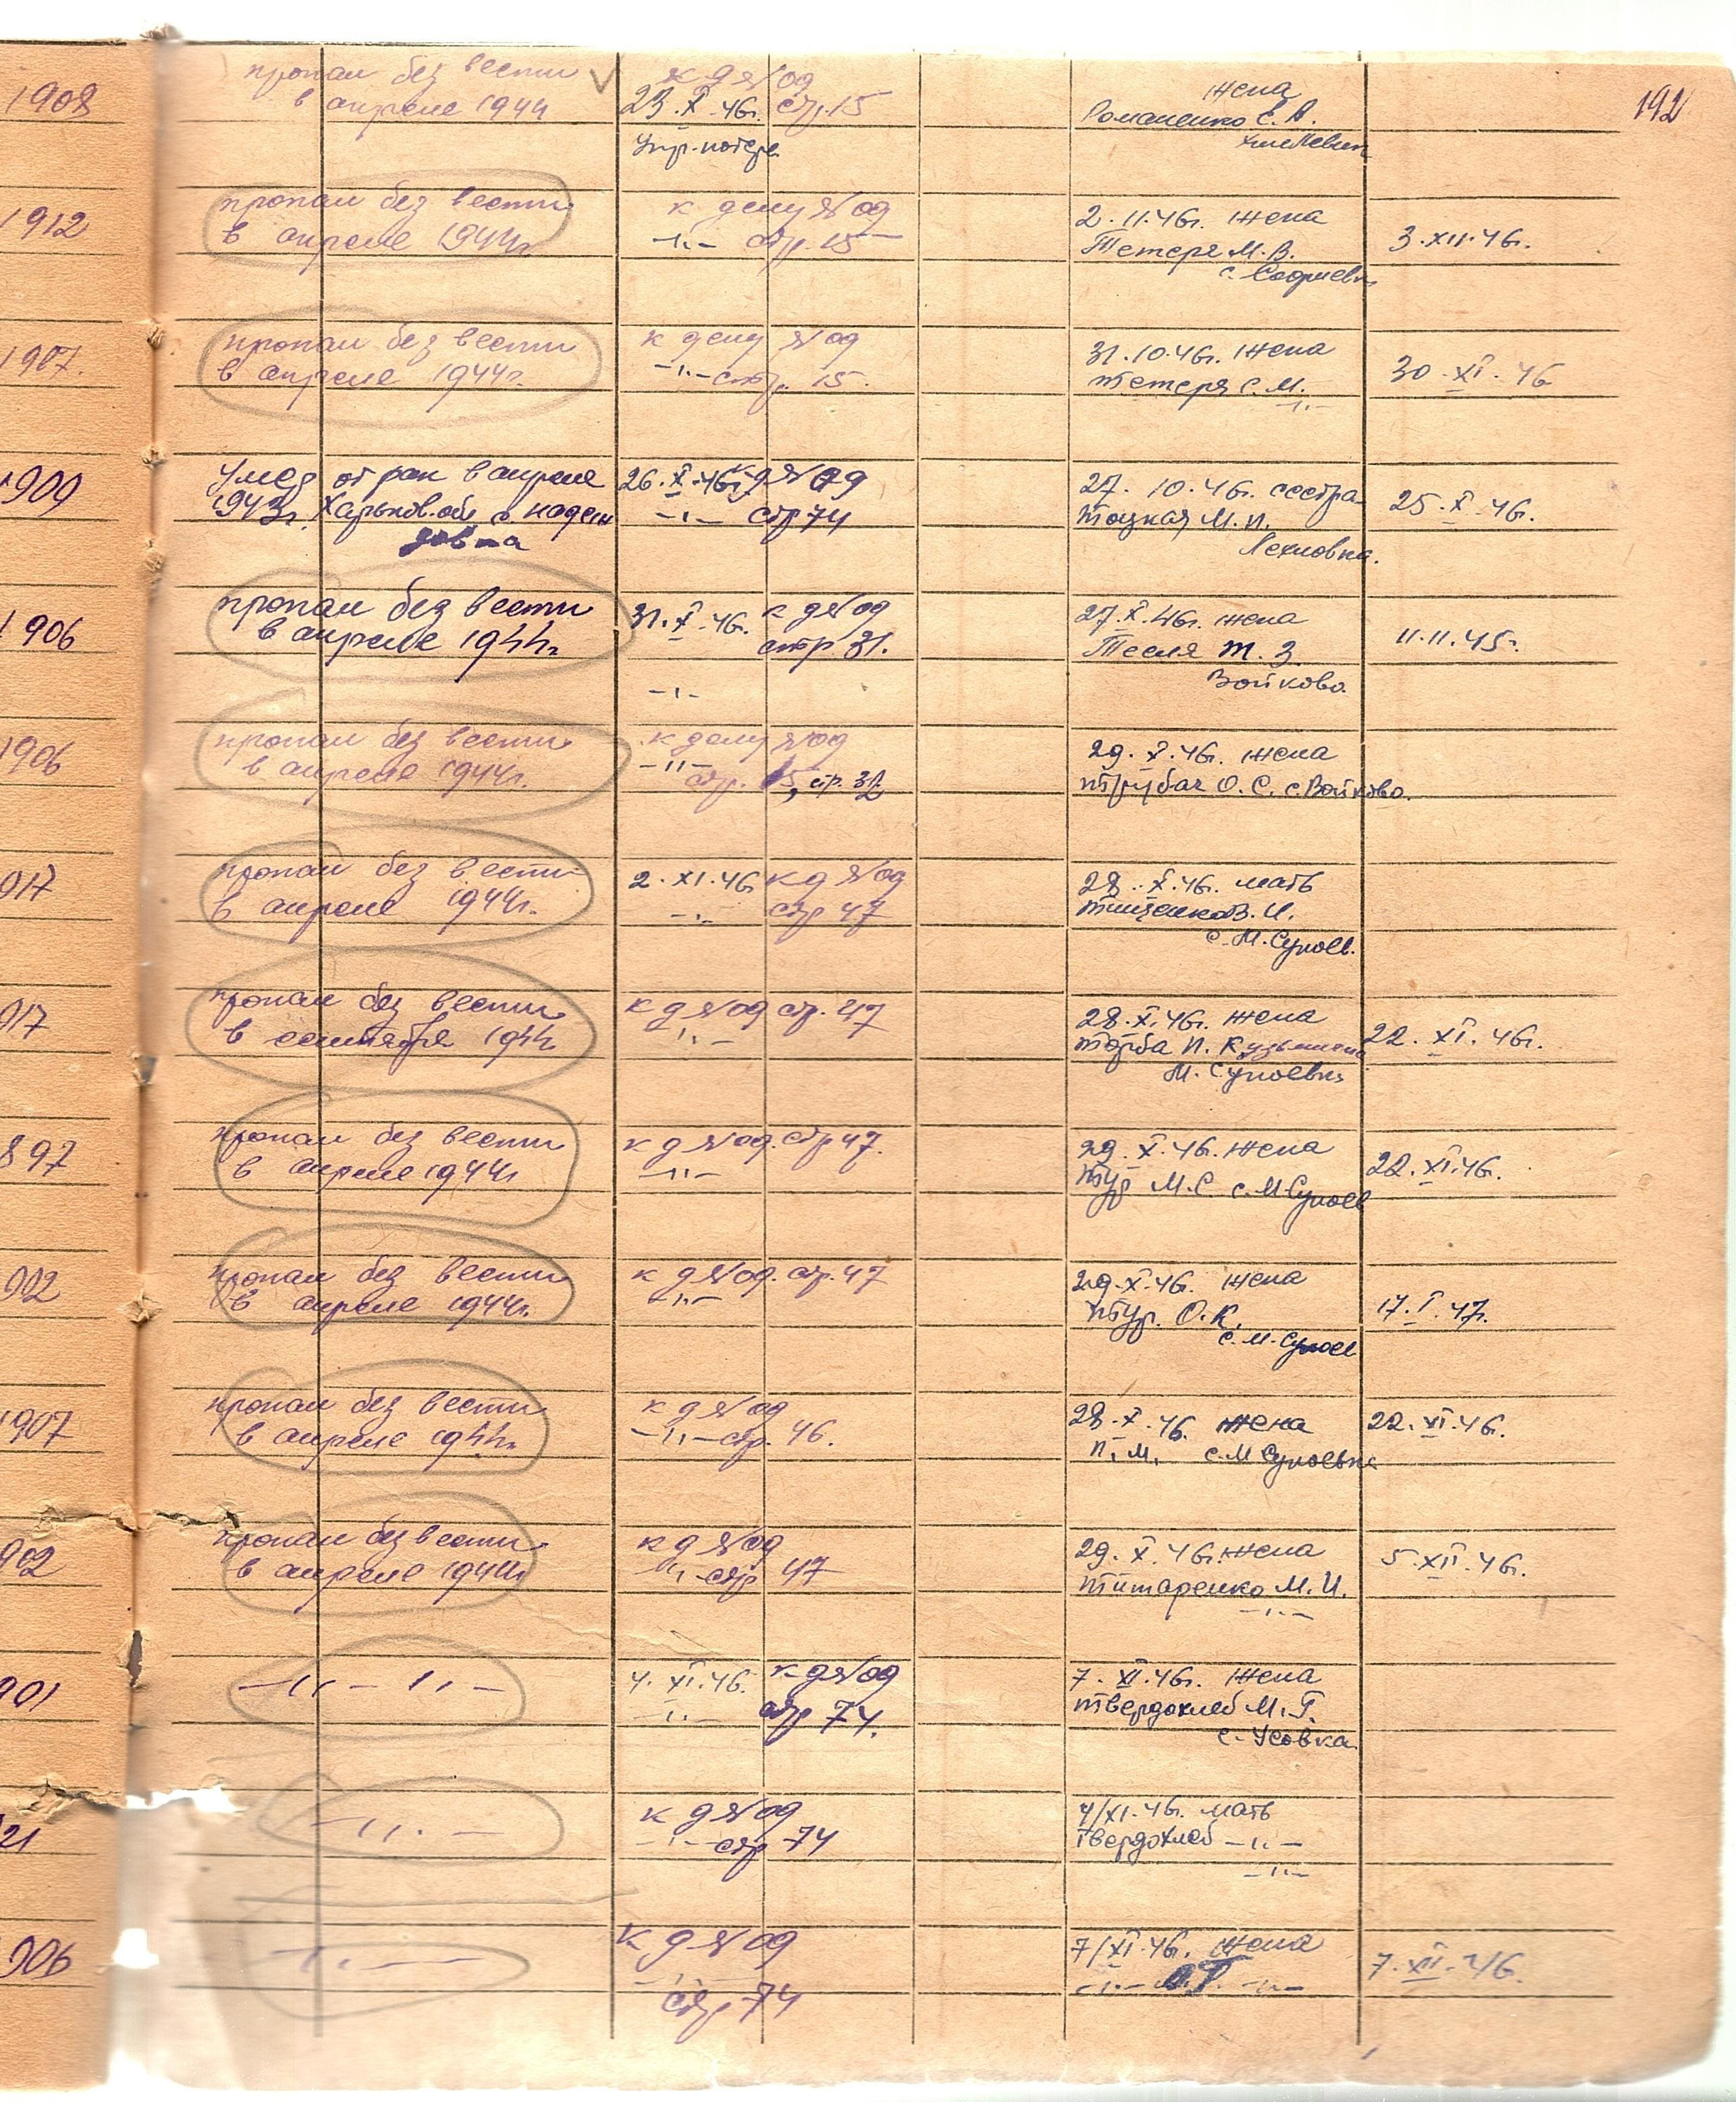 192
1908
пропал без вести
в апреле 1944
к д №09
23.X.46г. стр.15
Упр. потерь
жена
Романенко Е. А.
1912
пропал без вести
в апреле 1944г.
к делу №09
-"- стр. 15
2.11.46г. жена
Тетеря М. В.
с. Софиевк
3.XII.46г.
1907.
пропал без вести
в апреле 1944г.
к делу №09
-"- стр. 15.
31.10.46г. жена
Тетеря С. М.
-"-
30.XI.46
1909
Умер от ран в апреле
1943г. Харьков.об с.
26.X.46г. к д №09
-"- стр 74
27.10.46г. сестра
Тоцкая М. П.
Лехновка.
25.X.46г.
1906
пропал без вести
в апреле 1944г
31.X.46г. к д №09
стр. 31.
-"-
27.X.46г. жена
Тесля Т. З
Войково.
11.11.45г.
1906
пропал без вести
в апреле 1944г.
к делу №09
-"-
стр. 15, стр. 32
29.X.46г. жена
Трубач О. С. с. Войково.
917
пропал без вести
в апреле 1944г.
2.XI.46 к д №09
-"- стр 47
28.X.46г. мать
Тищенко В. И.
с. М. Супоев.
917
пропал без вести
в сентябре 1944
к д №09 стр. 47
-"-
28.X.46г. жена
Торба П. Кузьминич
М. Супоевка
22.XI.46г.
897
пропал без вести
в апреле 1944г
к д №09. стр 47.
-"-
29.X.46г. жена
Тур М. С с. М Супоев
22.XI.46г.
902
пропал без вести
в апреле 1944г.
к д №09. стр. 47
-"-
29.X.46г. жена
Тур. О. К.
с. М. Супоев
17.I.47г.
1907
пропал без вести
в апреле 1944г.
к д №09
-"- стр. 46.
28.X.46. жена
П. М. с. М Супоевка
22.XI.46г.
902
пропал без вести
в апреле 1944г
к д №09
-"- стр 47
29.X.46г. жена
Титаренко М. И.
-"-
5.XII.46г.
901
-"- -"-
4.XI.46г. к д №09
-"- стр 74.
7.XI.46г. жена
Твердохлеб М. Г.
с. Усовка
21
-"-
к д №09
-"- стр 74
4/XI.46г. мать
Твердохлеб -"-
-"-
906
-"-
к д №09
-"-
стр 74
7/XI.46г. жена
-"- М.Г. -"-
7.XII.46.